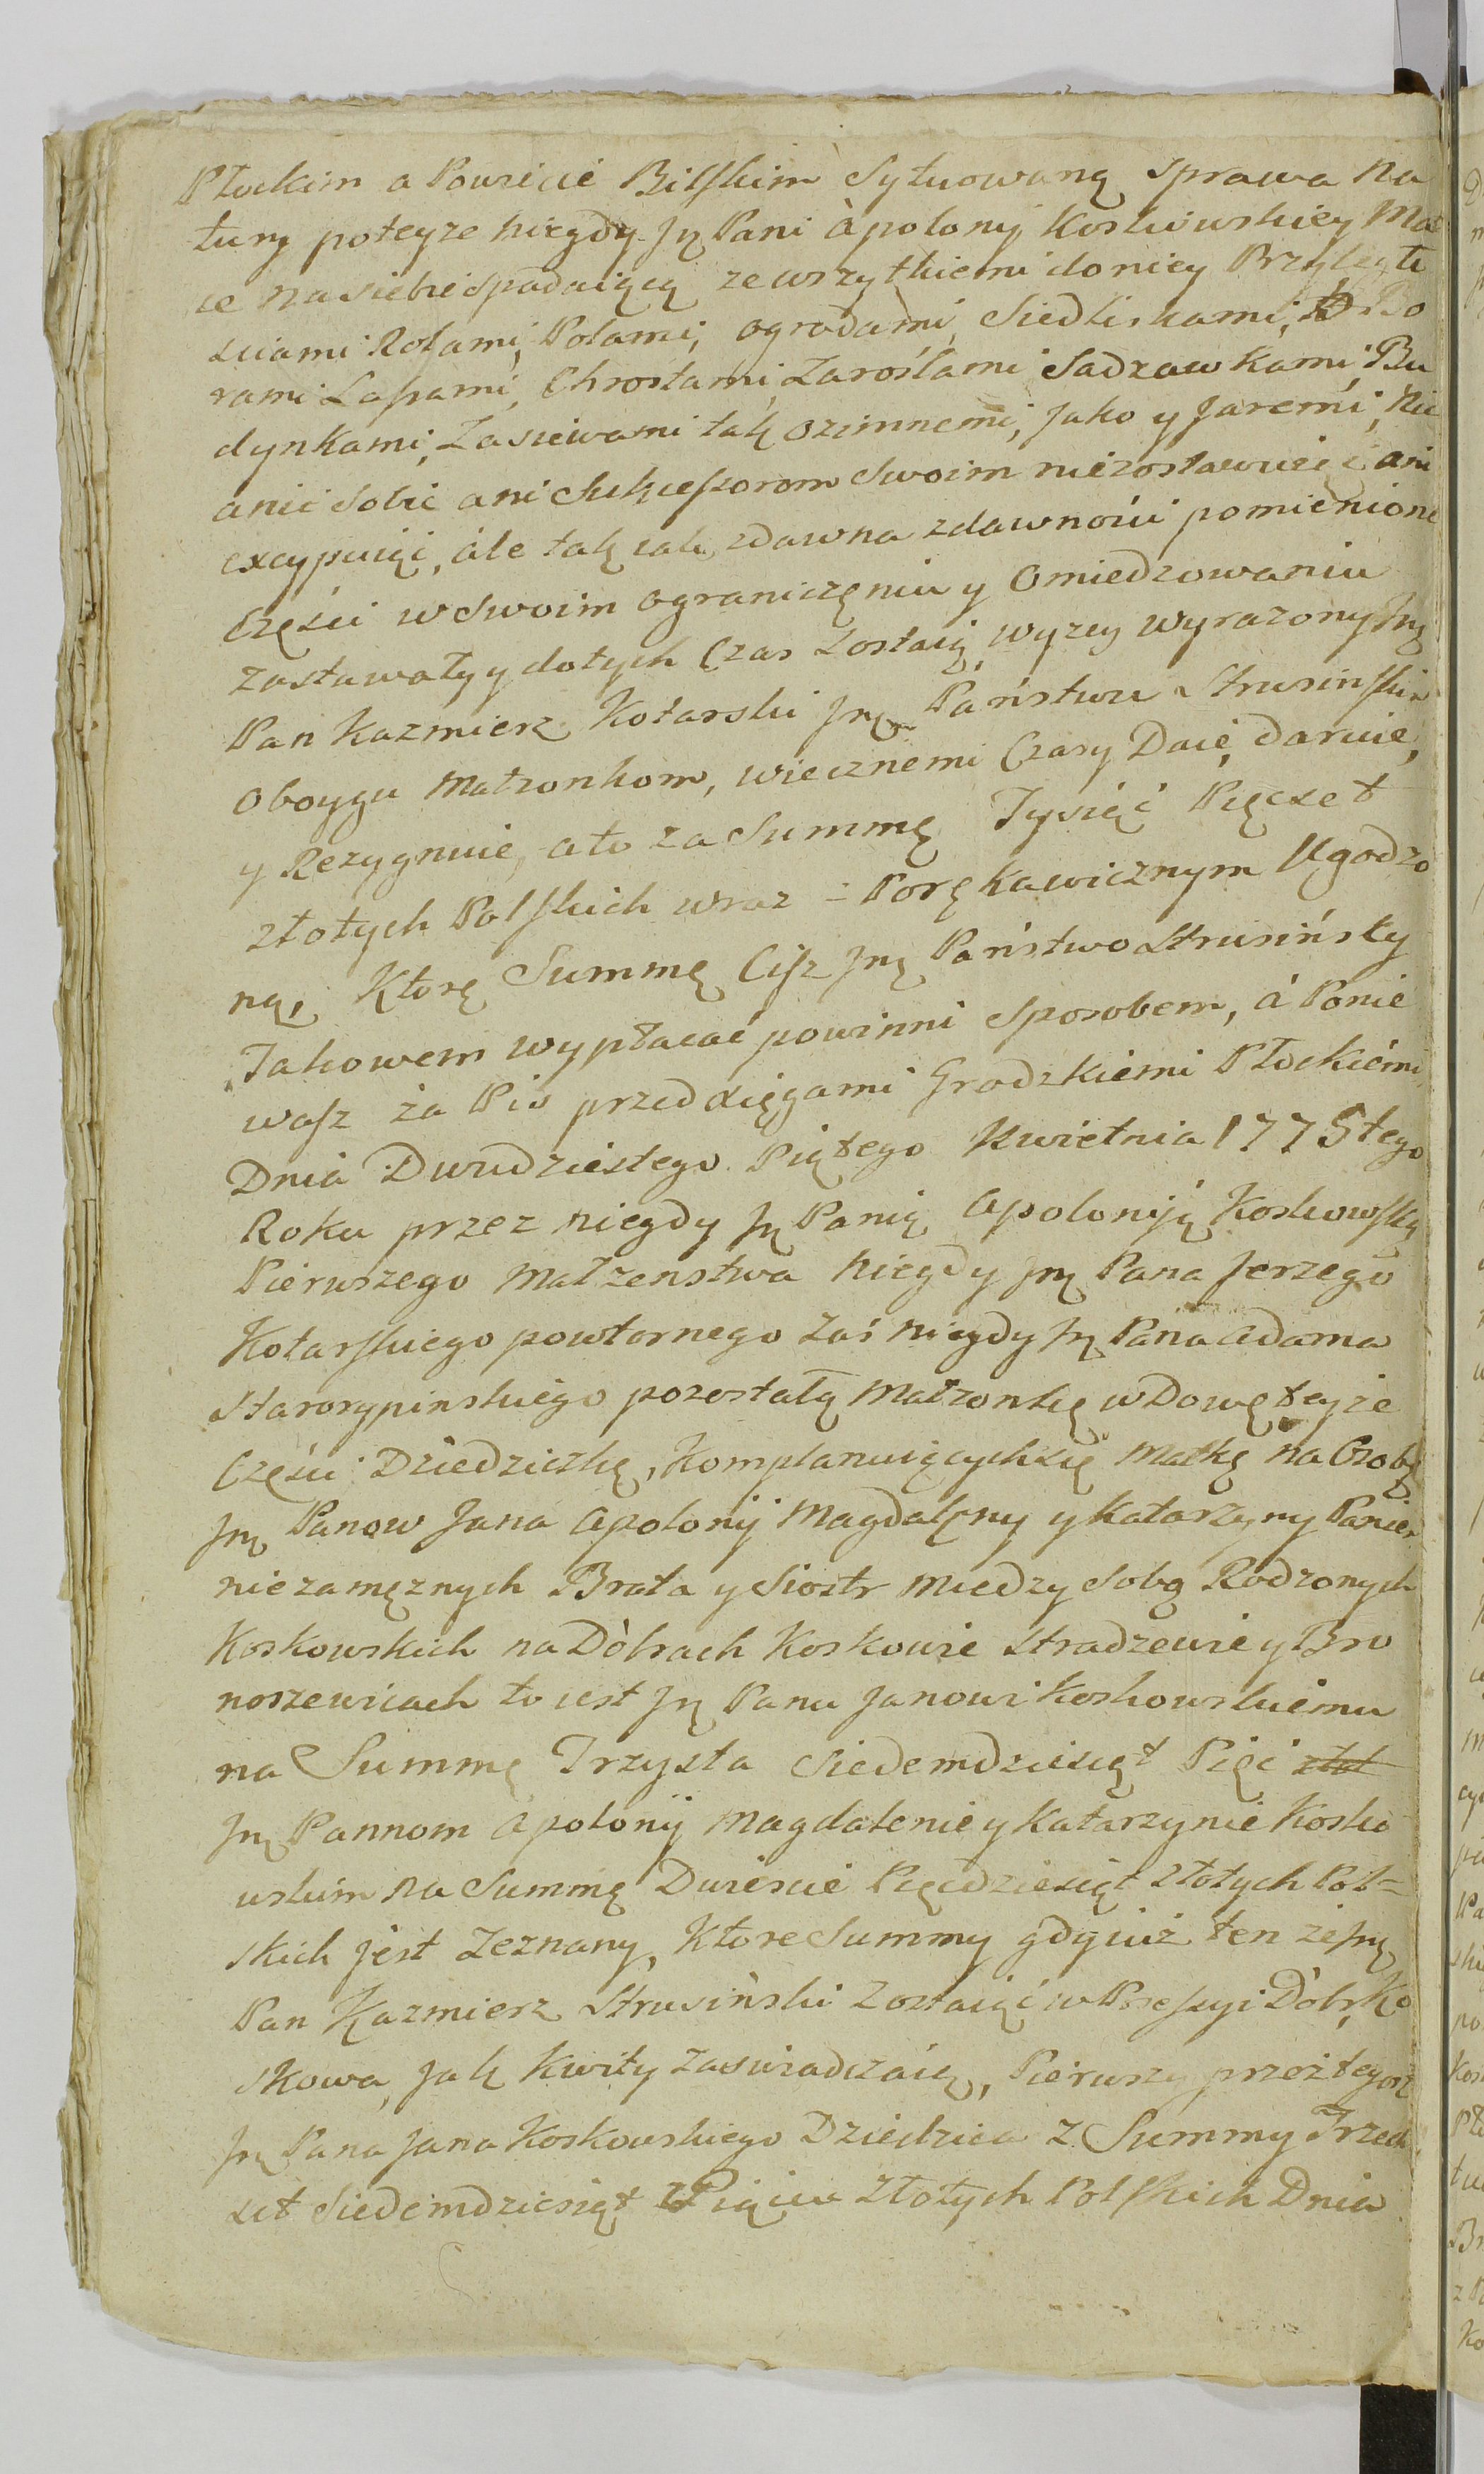 Płockim a Powiecie Bilskim Sytuowaną sprawa Na
tury poteyze niegdy Ję Pani Apolony Koskowskiey Mat
ce na siebie spadaiącą ze wszytkiemi do niey Przyległo
sciami Rolami, Polami, ogrodami, Siedliskami, Bo
rami Lasami, Chrostami, Zaroslami Sadzawkami, Bu
dynkami, Zasiewami tak ozimnemi, jako y Jaremi, Nic
anic Sobie ani Sukcessorom Swoim niezostawuiąc ani
excypuiąc, ale tak iak zdawna zdawności pomienione
Części w Swoim ograniczęniu y Omiedzowaniu
zostawały y dotych Czas Zostaią, wyzey wyrazony Jmę
Pan Kazmierz Kotarski Jmę Państwu Strusinskim
Oboygu Matzonkom, wiecznemi Czasy Daie, daruie,
y Rezygnuie, ato za Summę Tysiąć Pięcset
złotych Polskich wraz z Porękawicznym Ugodzo
ną, Ktorę Summę Ciż Jmę Państwo Strusińsky
Takowem wypłacać powinni Sposobem, á Ponie
wasz za Pis przed xięgami Grodzkiemi Płockiemi
Dnia Dwudziestego Piątego Kwietnia 1775tego
Roku przez niegdy Ję Panią Apoloniją Koskowską
Pierwszego Małzenstwa niegdy Jmę Pana Jerzego
Kotarskiego powtornego Zaś niegdy Ję Pana Adama
Starorypinskiego pozostałą Małzonkę wdowę teyze
Części Dziedziczkę, Komplanuiącychsię Matkę na Osobę
Jmę Panow Jana Apolonij Magdaleny y Katarzyny Panien
niezamęznych Brata y Siostr miedzy Sobą Rodzonych
Koskowskich na Dobrach Koskowie Stradzewie y Bro
noszewicach to iest Ję Panu Janowi Koskowskiemu
na Summę Trzysta Siedemdziesiąt Pięć złot
Jmę Pannom Apolonij Magdalenie y Katarzynie Kosko
wskim na Summę Dwiescie Pięcdziesiąt Złotych Pol=
skich jest Zeznany, Ktore Summy gdyiuż ten że Jmę
Pan Kazmierz Strusiński Zostaiąć w Possessyi Dóbr Ko
skowa, jak Kwity zaswiadczaią, Pierwszy przez tegosz
Jmę Pana Jana Koskowskiego Dziedzica z Summy Trzech
set Siedemdziesiąt Piąciu Złotych Polskich Dnia